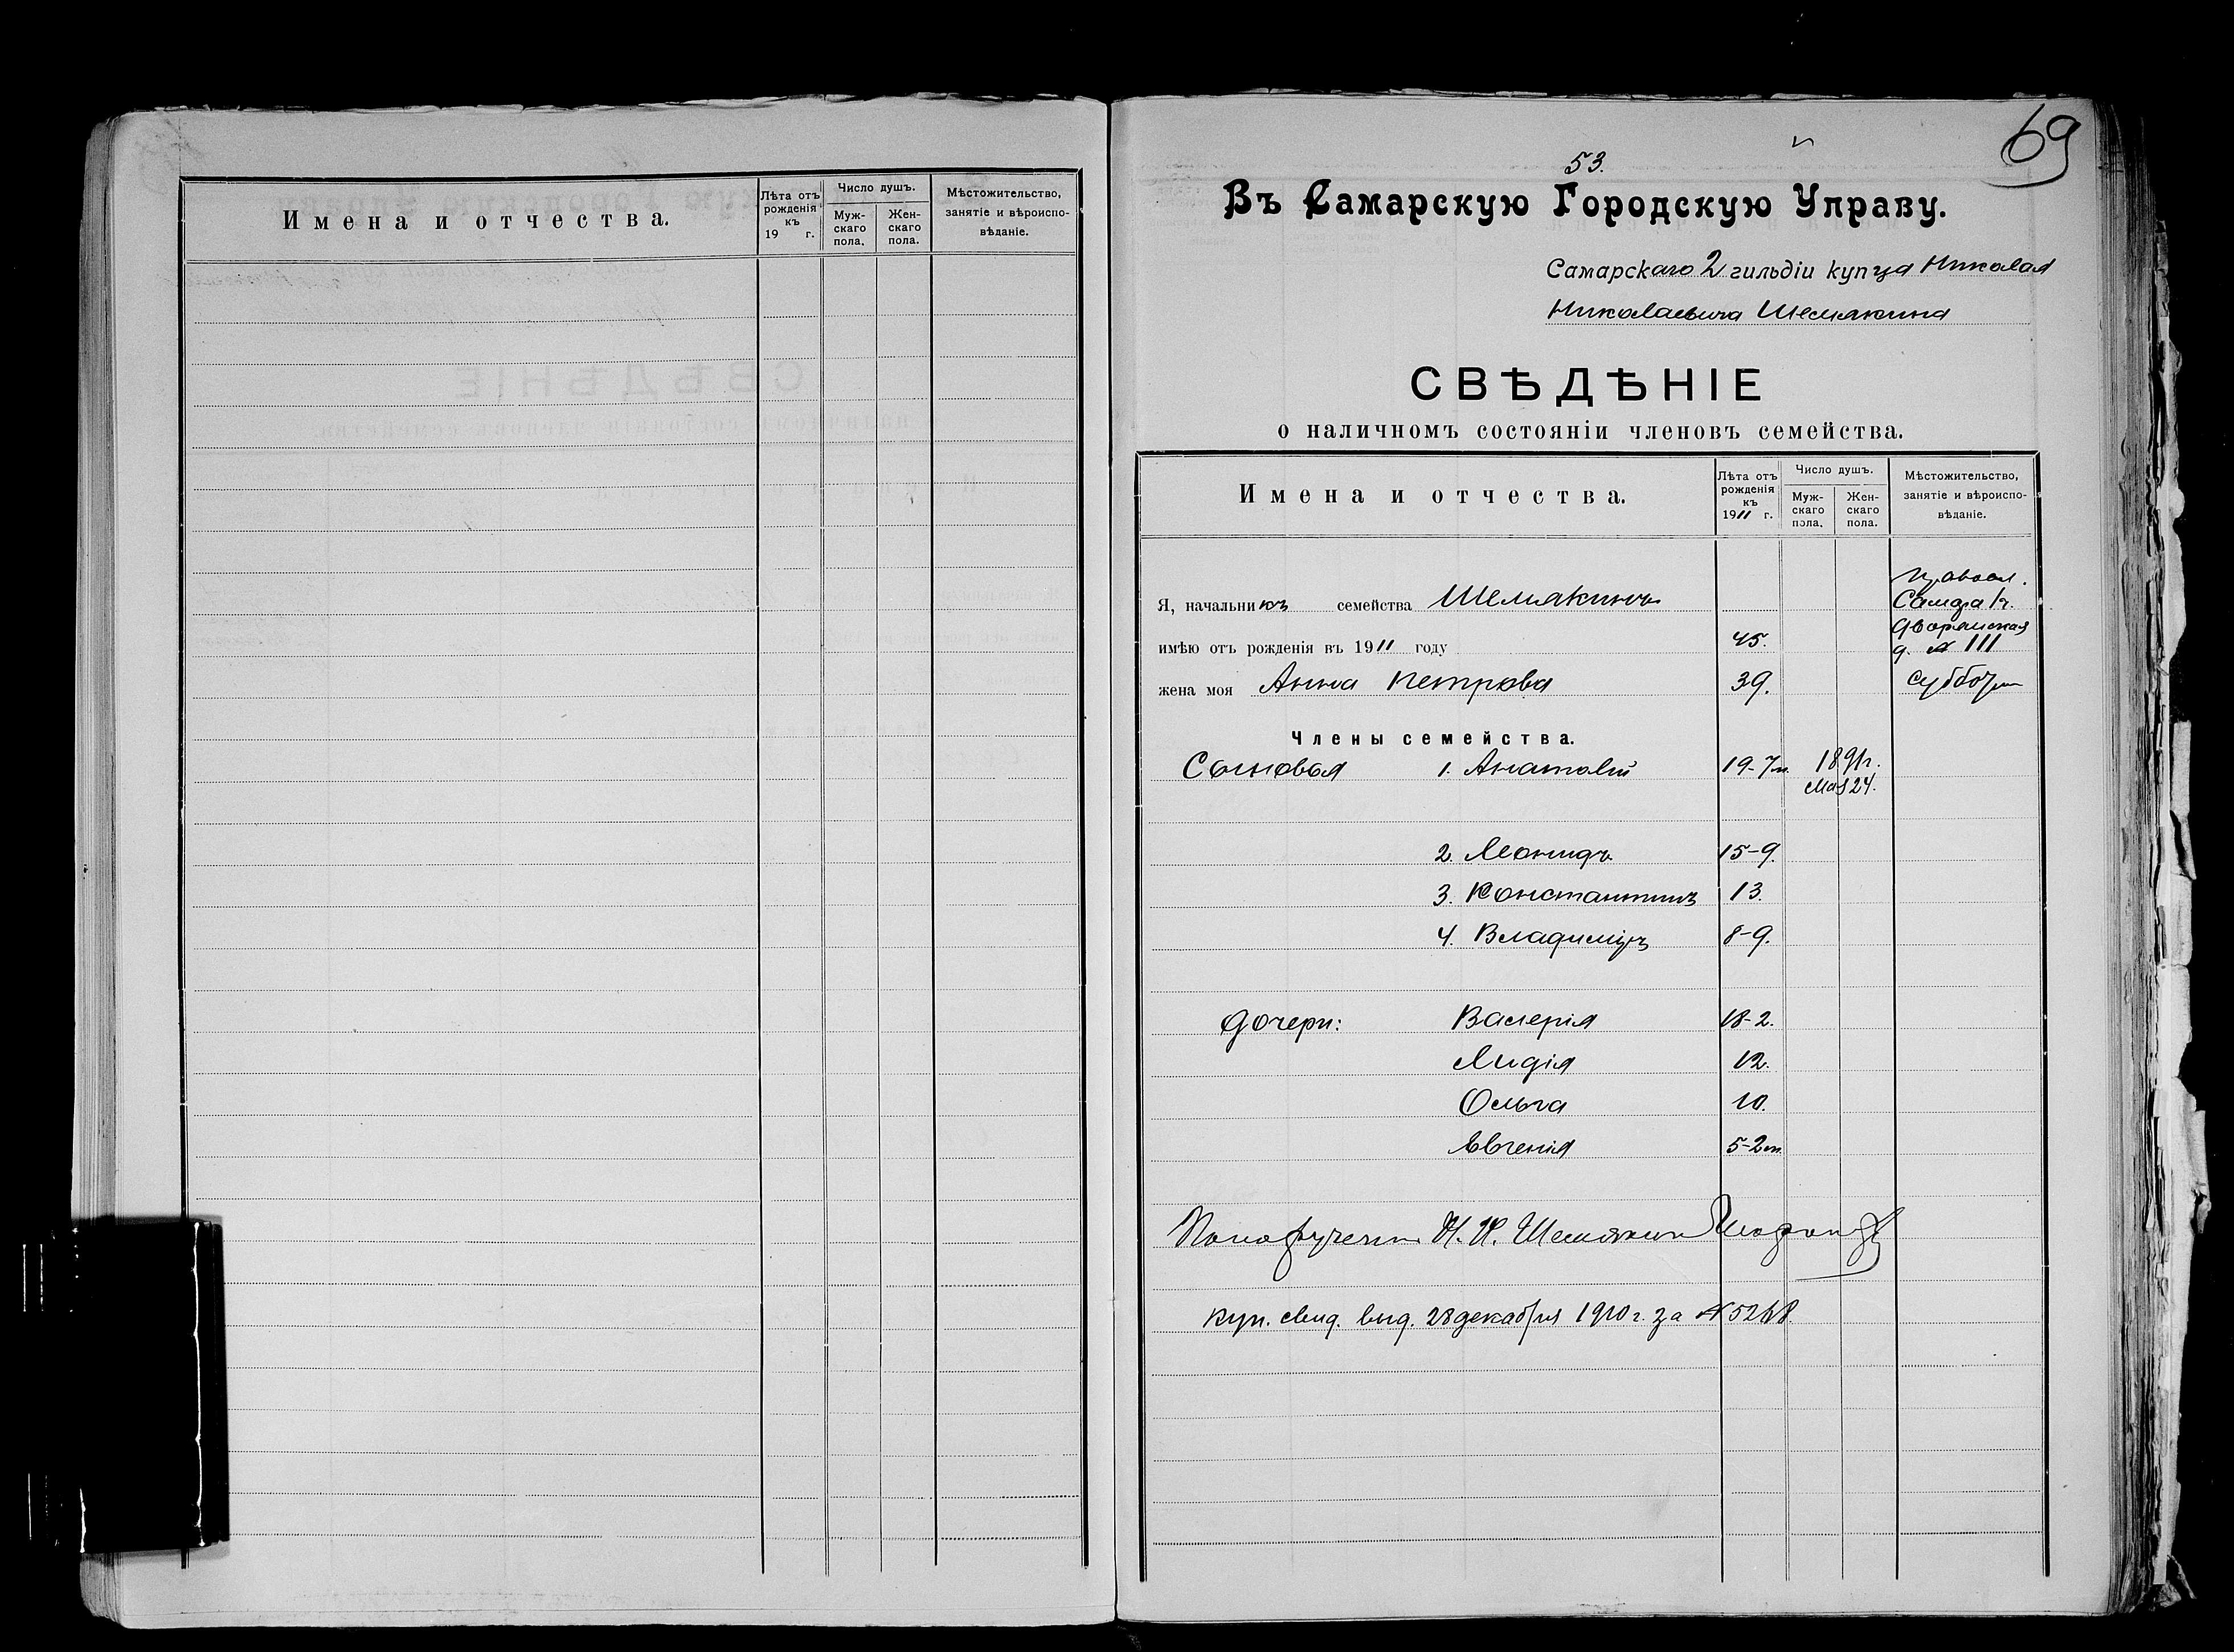 Имена и отчества.
Лѣта отъ рожденія къ 19 г.
Число душъ.
Муж-скаго пола.
Жен-скаго пола.
Мѣстожительство, занятіе и вѣроиспо-вѣданіе.
69
53.
Въ Самарскую Городскую Управу.
Самарскаго 2 гильдіи купца Николая
Николаевича Шемякина
СВѢДѢНІЕ
о наличномъ состояніи членовъ семейства.
Имена и отчества.
Лѣта отъ рожденія къ 1911 г.
Число душъ.
Муж-скаго пола.
Жен-скаго пола.
Мѣстожительство, занятіе и вѣроиспо-вѣданіе.
Правосл.
Я, начальникъ семейства Шемякинъ Самара 1ч.
Дворянская
имѣю отъ рожденія въ 1911 году 45. д. № 111
жена моя Анна Петрова 39.
Члены семейства.
Сыновья 1. Анатолій 19-7м. 1891г.
Мая 24.
2. Леонидъ 15-9.
3. Константинъ 13.
4. Владиміръ 8-9.
Дочери: Валерія 18-2.
Лидія 12.
Ольга 10.
Евгенія 5-2м.
По порученію Н. Н. Шемякина
Куп. свид. выд. 28 декабря 1910 г. за № 5268.